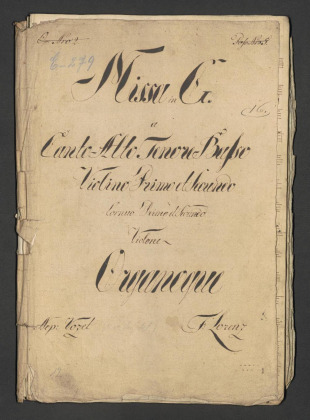 E. 279
Missa in G.
a
Canto Alto Tenore Basso
Violino Primo et Secundo
Cornuo Primo et Secundo
Violone
Organoque
F Lorenz